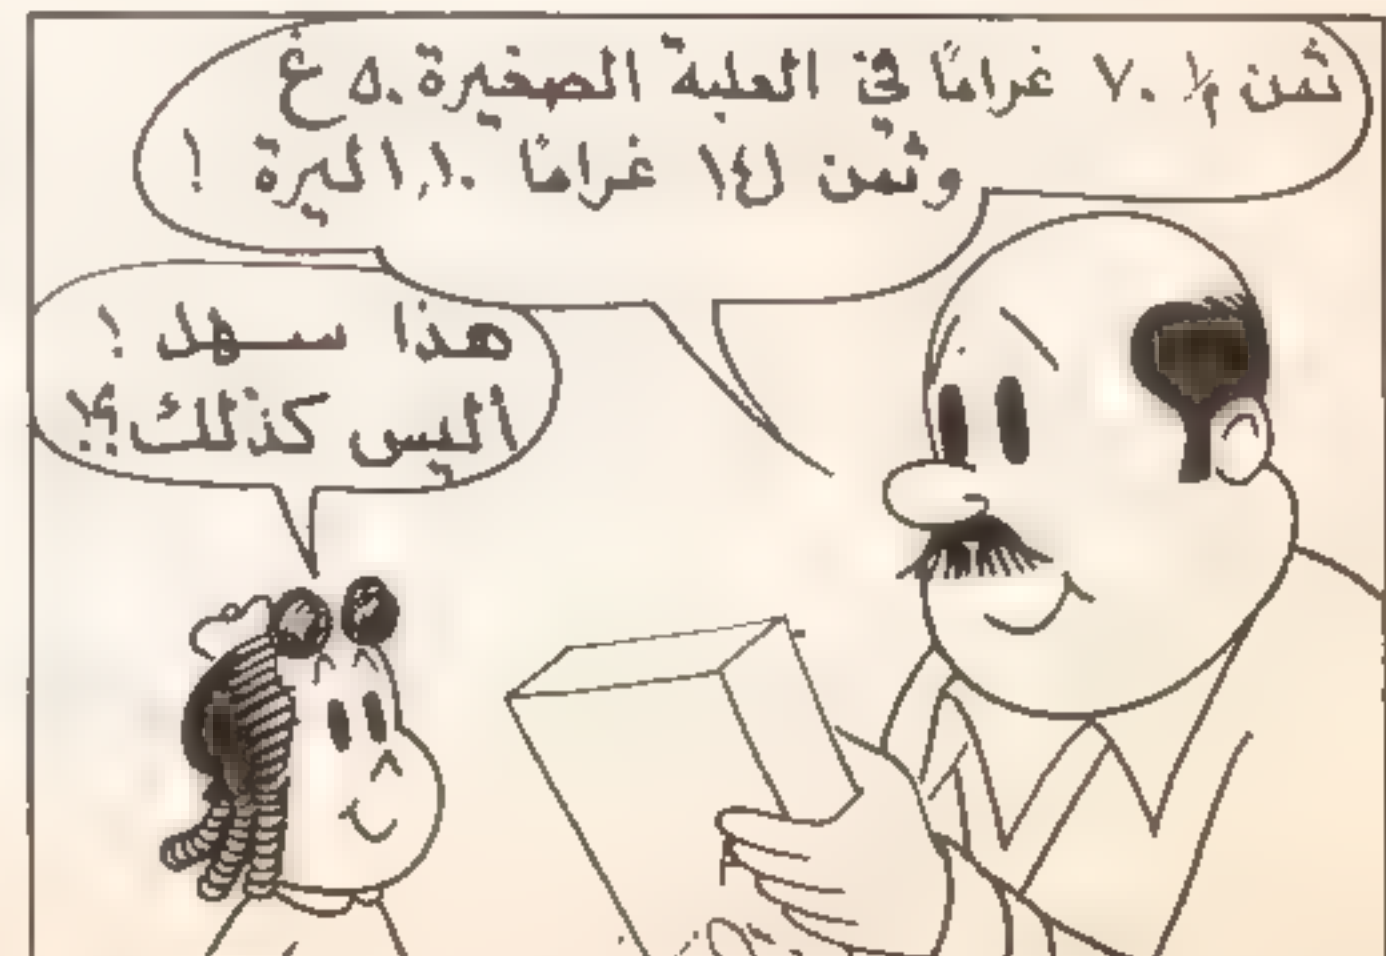 ثمن ٧٠ غرامًا في العلبة الصغيرة ٥٠ غ
وثمن ١٤ غرامًا ١٠ ليرة !
هذا سهل !
أليس كذلك؟!